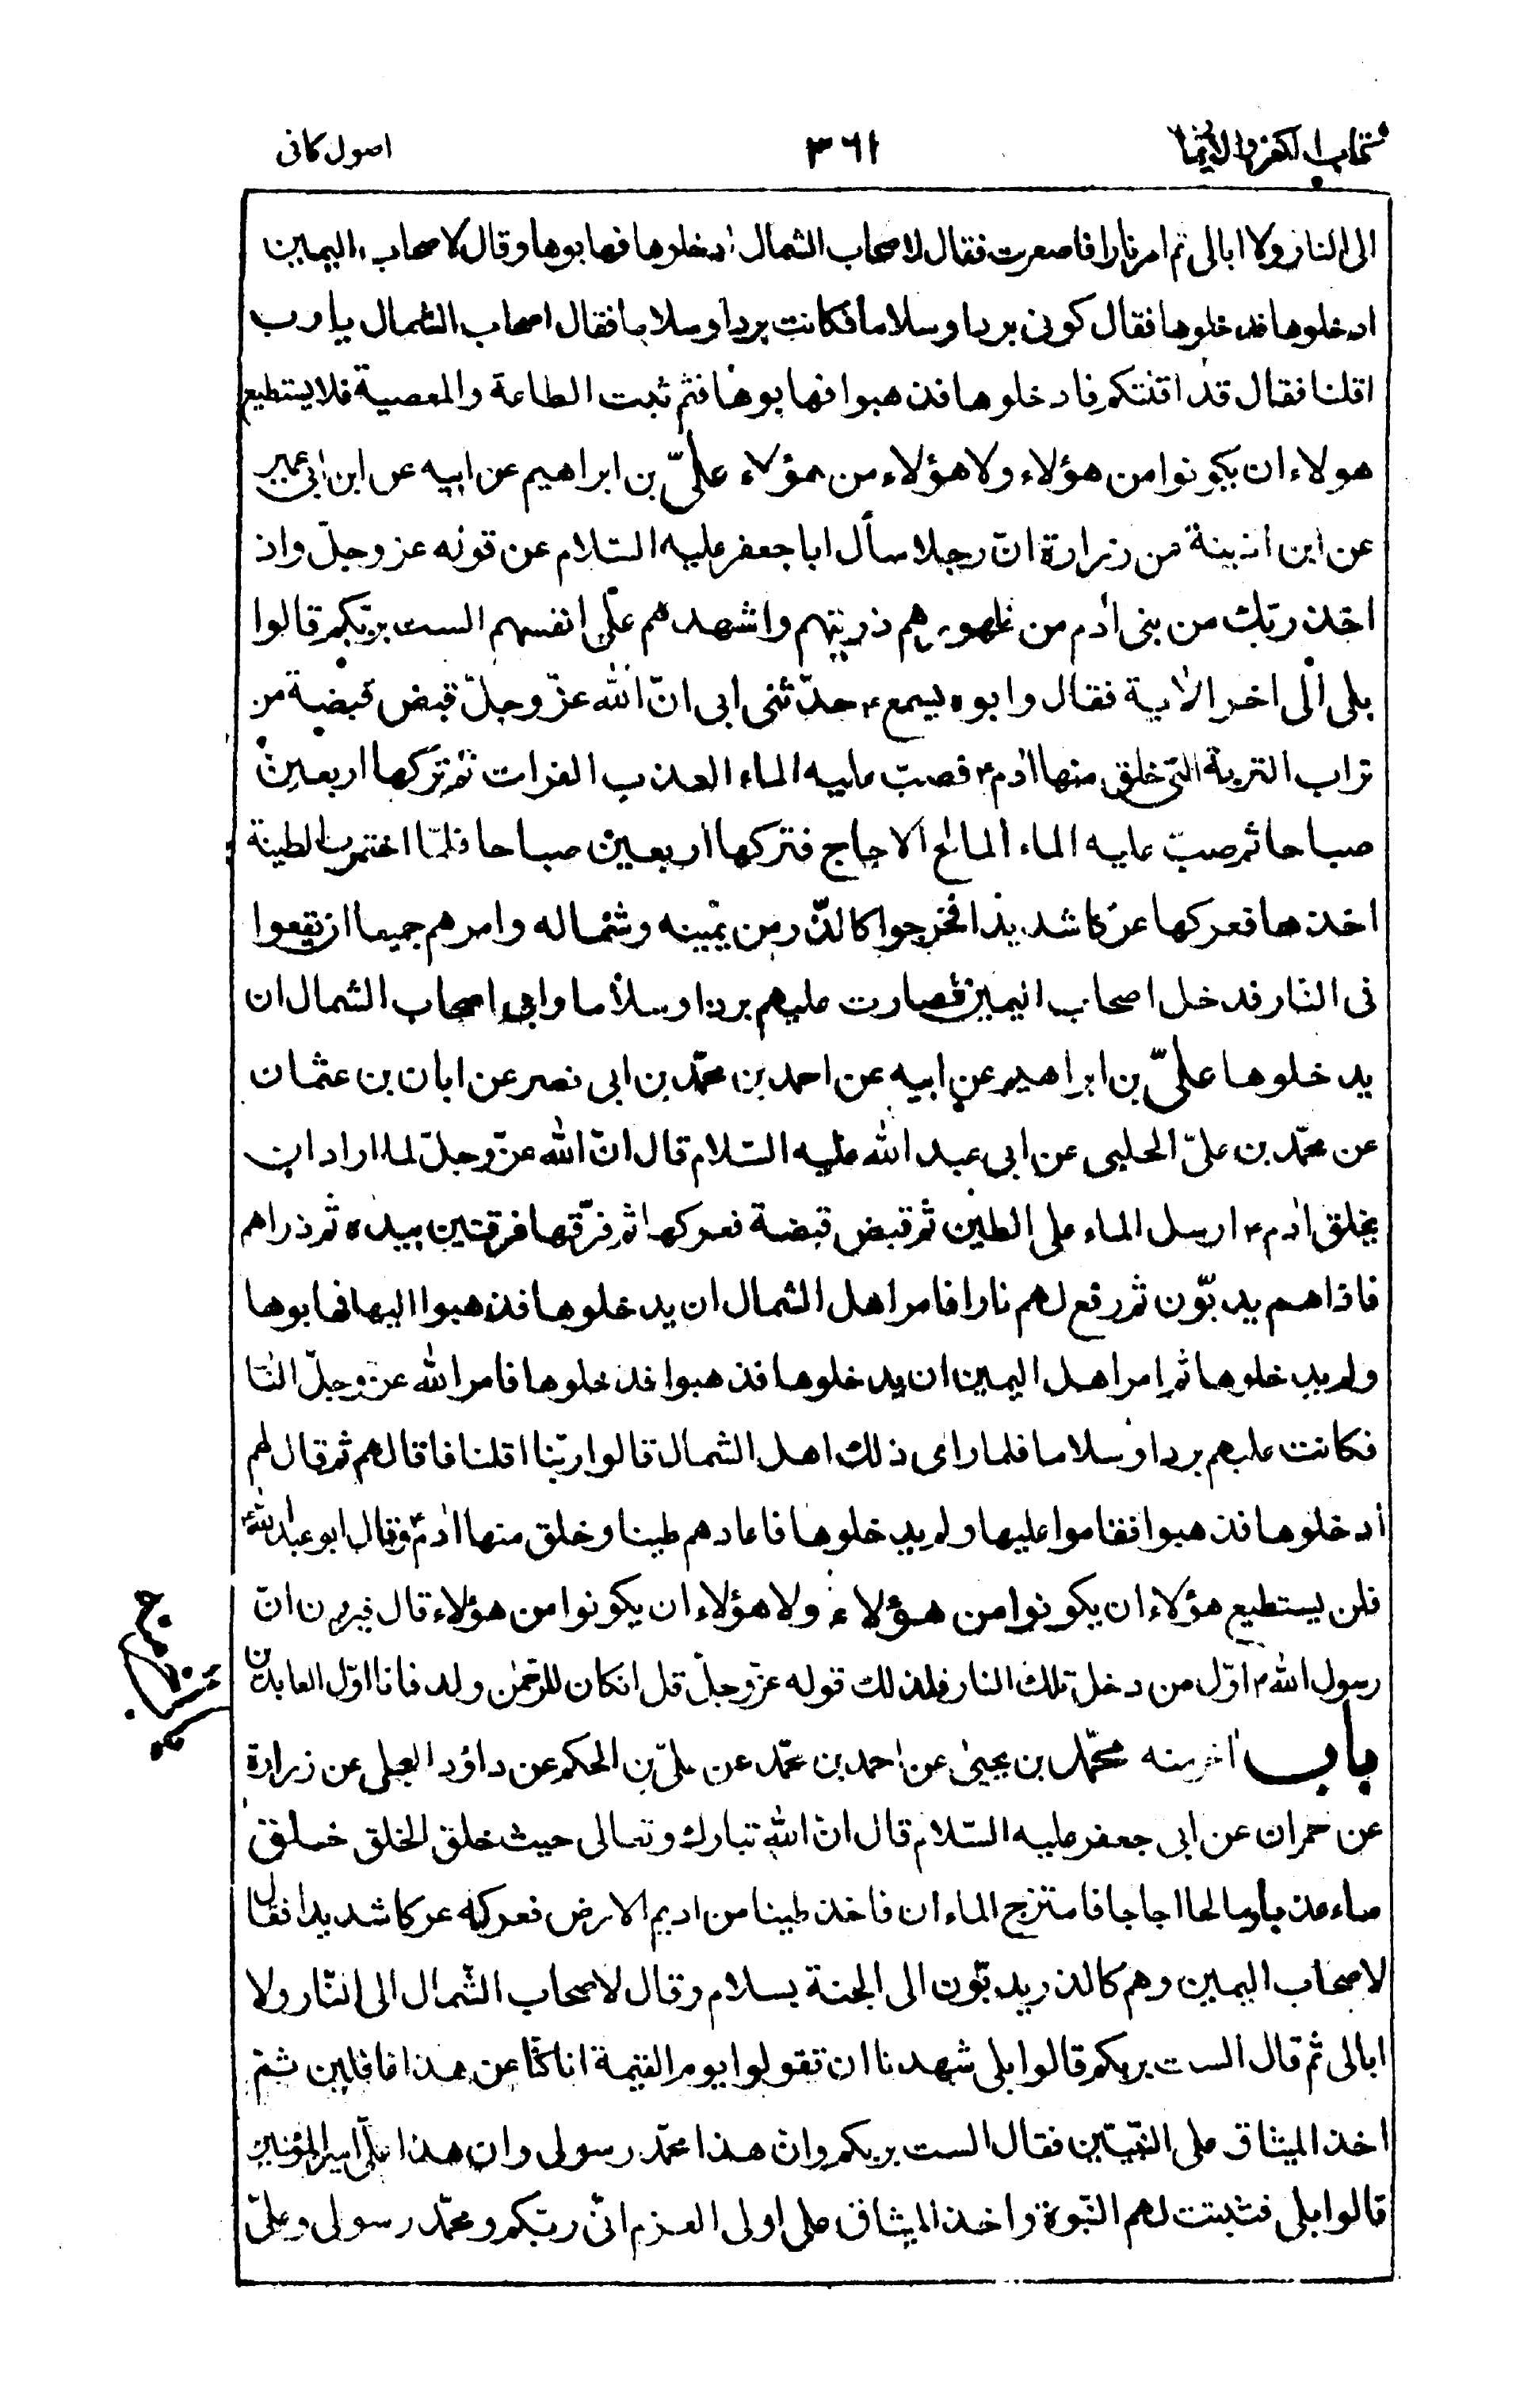 كتاب الكفر والايمان ٣٦١ اصول كافى
الى النار ولا ابالى ثم امر نارا فاصعرت فقال لاصحاب الشمال ادخلوها فهابوها وقال لاصحاب اليمين
ادخلوها فدخلوها فقال كونى بردا وسلاما فكانت بردا وسلاما فقال اصحاب الشمال يا رب
اقلنا فقال قد اقلتكم فادخلوها فذهبوا فهابوها فثم ثبت الطاعة والمعصية فلا يستطيع
هولاء ان يكونوا من هؤلاء ولا هؤلاء من هؤلاء علىّ بن ابراهيم عن ابيه عن ابن ابى عمير
عن ابن اذينة عن زرارة انّ رجلا سأل ابا جعفر عليه السّلام عن قوله عز وجلّ واذ
اخذ ربّك من بنى ادم من ظهورهم ذريتهم واشهدهم على انفسهم الست بربّكم قالوا
بلى الى اخر الاية فقال وابوه يسمع ع حدّثنى ابى انّ الله عزّ وجلّ قبض قبضة من
تراب التربة التى خلق منها ادم ع فصبّ عليه الماء العذب الفرات ثم تركها اربعين
صباحا ثم صبّ عليه الماء المالح الاجاج فتركها اربعين صباحا فلمّا اختمرت الطينة
اخذها فعركها عركا شديدا فخرجوا كالذّر من يمينه وشماله وامرهم جميعا ان يقعوا
فى النّار فدخل اصحاب اليمين فصارت عليهم بردا وسلاما وابى اصحاب الشمال ان
يدخلوها علىّ بن ابراهيم عن ابيه عن احمد بن محمّد بن ابى نصر عن ابان بن عثمان
عن محمّد بن علىّ الحلبى عن ابى عبد الله عليه السّلام قال انّ الله عزّ وجلّ لما اراد ان
يخلق ادم ع ارسل الماء على الطين ثم قبض قبضة فعركها ثم فرّقها فرقتين بيده ثم ذراهم
فاذا هم يدبّون ثم رفع لهم نارا فامر اهل الشمال ان يدخلوها فذهبوا اليها فهابوها
ولم يدخلوها ثم امر اهل اليمين ان يدخلوها فذهبوا فدخلوها فامر الله عزّ وجلّ النّا
فكانت عليهم بردا وسلاما فلما راى ذلك اهل الشمال قالوا ربّنا اقلنا فاقالهم ثم قال لهم
ادخلوها فذهبوا فقاموا عليها ولم يدخلوها فاعادهم طينا وخلق منها ادم ع وقال ابو عبد الله ع
فلن يستطيع هؤلاء ان يكونوا من هؤلاء ولا هؤلاء ان يكونوا من هؤلاء قال فيرون انّ
رسول الله ص اوّل من دخل تلك النار فلذلك قوله عزّ وجلّ قل ان كان للرّحمن ولد فانا اوّل العابدين
باب اخر منه محمّد بن يحيى عن احمد بن محمّد عن علىّ بن الحكم عن داؤد العجلى عن زرارة
عن حمران عن ابى جعفر عليه السّلام قال انّ الله تبارك وتعالى حيث خلق الخلق خلق
ماء عذبا وماء مالحا اجاجا فامتزج الماءان فاخذ طينا من اديم الارض فعركه عركا شديدا فقال
لاصحاب اليمين وهم كالذر يدبّون الى الجنة بسلام وقال لاصحاب الشّمال الى النّار ولا
ابالى ثم قال الست بربكم قالوا بلى شهدنا ان تقولوا يوم القيمة انا كنّا عن هذا غافلين ثم
اخذ الميثاق على النّبيّين فقال الست بربكم وانّ هذا محمّد رسولى وان هذا علىّ امير المؤمنين
قالوا بلى فثبتت لهم النّبوة واخذ الميثاق على اولى العزم انّى ربّكم ومحمّد رسولى وعلىّ